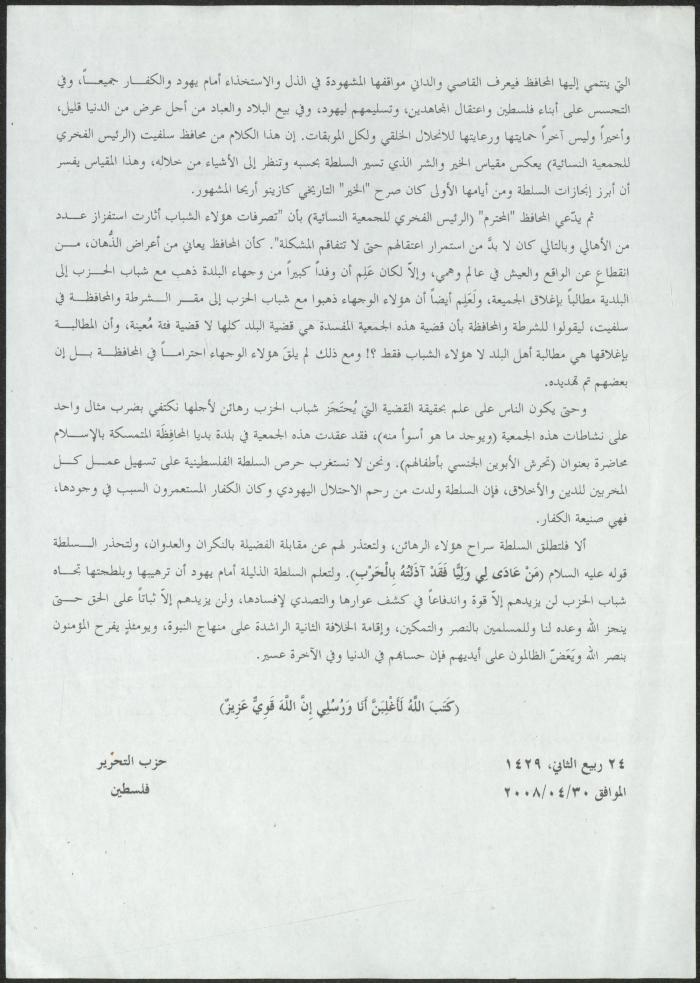 التي ينتمي إليها المحافظ فيعرف القاصي والداني مواقفها المشهودة في الذل والاستخذاء أمام يهود والكفار جميعاً، وفي
التجسس على أبناء فلسطين واعتقال المجاهدين، وتسليمهم ليهود، وفي بيع البلاد والعباد من أجل عرض من الدنيا قليل،
وأخيراً وليس آخراً حمايتها ورعايتها للانحلال الخلقي ولكل الموبقات. إن هذا الكلام من محافظ سلفيت (الرئيس الفخري
للجمعية النسائية) يعكس مقياس الخير والشر الذي تسير السلطة بحسبه وتنظر إلى الأشياء من خلاله، وهذا المقياس يفسر
أن أبرز إنجازات السلطة ومن أيامها الأولى كان صرح "الخير" التاريخي كازينو أريحا المشهور.
ثم يدّعي المحافظ "المحترم" (الرئيس الفخري للجمعية النسائية) بأن "تصرفات هؤلاء الشباب أثارت استفزاز عدد
من الأهالي وبالتالي كان لا بدَّ من استمرار اعتقالهم حتى لا تتفاقم المشكلة". كأن المحافظ يعاني من أعراض الذُّهان، من
انقطاعٍ عن الواقع والعيش في عالم وهمي، وإلاّ لكان عَلِم أن وفداً كبيراً من وجهاء البلدة ذهب مع شباب الحزب إلى
البلدية مطالباً بإغلاق الجميعة، ولَعَلِم أيضاً أن هؤلاء الوجهاء ذهبوا مع شباب الحزب إلى مقر الشرطة والمحافظة في
سلفيت، ليقولوا للشرطة والمحافظة بأن قضية هذه الجمعية المفسدة هي قضية البلد كلها لا قضية فئة مُعينة، وأن المطالبة
بإغلاقها هي مطالبة أهل البلد لا هؤلاء الشباب فقط ؟! ومع ذلك لم يلقَ هؤلاء الوجهاء احتراماً في المحافظة بل إن
بعضهم تم تهديده.
وحتى يكون الناس على علم بحقيقة القضية التي يُحتَجَز شباب الحزب رهائن لأجلها نكتفي بضرب مثال واحد
على نشاطات هذه الجمعية (ويوجد ما هو أسوأ منه)، فقد عقدت هذه الجمعية في بلدة بديا المحافِظَة المتمسكة بالإسلام
محاضرة بعنوان (تحرش الأبوين الجنسي بأطفالهم). ونحن لا نستغرب حرص السلطة الفلسطينية على تسهيل عمل كل
المخربين للدين والأخلاق، فإن السلطة ولدت من رحم الاحتلال اليهودي وكان الكفار المستعمرون السبب في وجودها،
فهي صنيعة الكفار.
ألا فلتطلق السلطة سراح هؤلاء الرهائن، ولتعتذر لهم عن مقابلة الفضيلة بالنكران والعدوان، ولتحذر السلطة
قوله عليه السلام (مَنْ عَادَى لِي وَلِيًّا فَقَدْ آذَنْتُهُ بِالْحَرْبِ). ولتعلم السلطة الذليلة أمام يهود أن ترهيبها وبلطجتها تجاه
شباب الحزب لن يزيدهم إلاّ قوة واندفاعاً في كشف عوارها والتصدي لإفسادها، ولن يزيدهم إلاّ ثباتاً على الحق حتى
ينجز الله وعده لنا وللمسلمين بالنصر والتمكين، وإقامة الخلافة الثانية الراشدة على منهاج النبوة، ويومئذٍ يفرح المؤمنون
بنصر الله ويَعَضّ الظالمون على أيديهم فإن حسابهم في الدنيا وفي الآخرة عسير.
(كَتَبَ اللَّهُ لَأَغْلِبَنَّ أَنَا وَرُسُلِي إِنَّ اللَّهَ قَوِيٌّ عَزِيزٌ)
٢٤ ربيع الثاني، ١٤٢٩
حزب التحرير
الموافق ٢٠٠٨/٠٤/٣٠
فلسطين